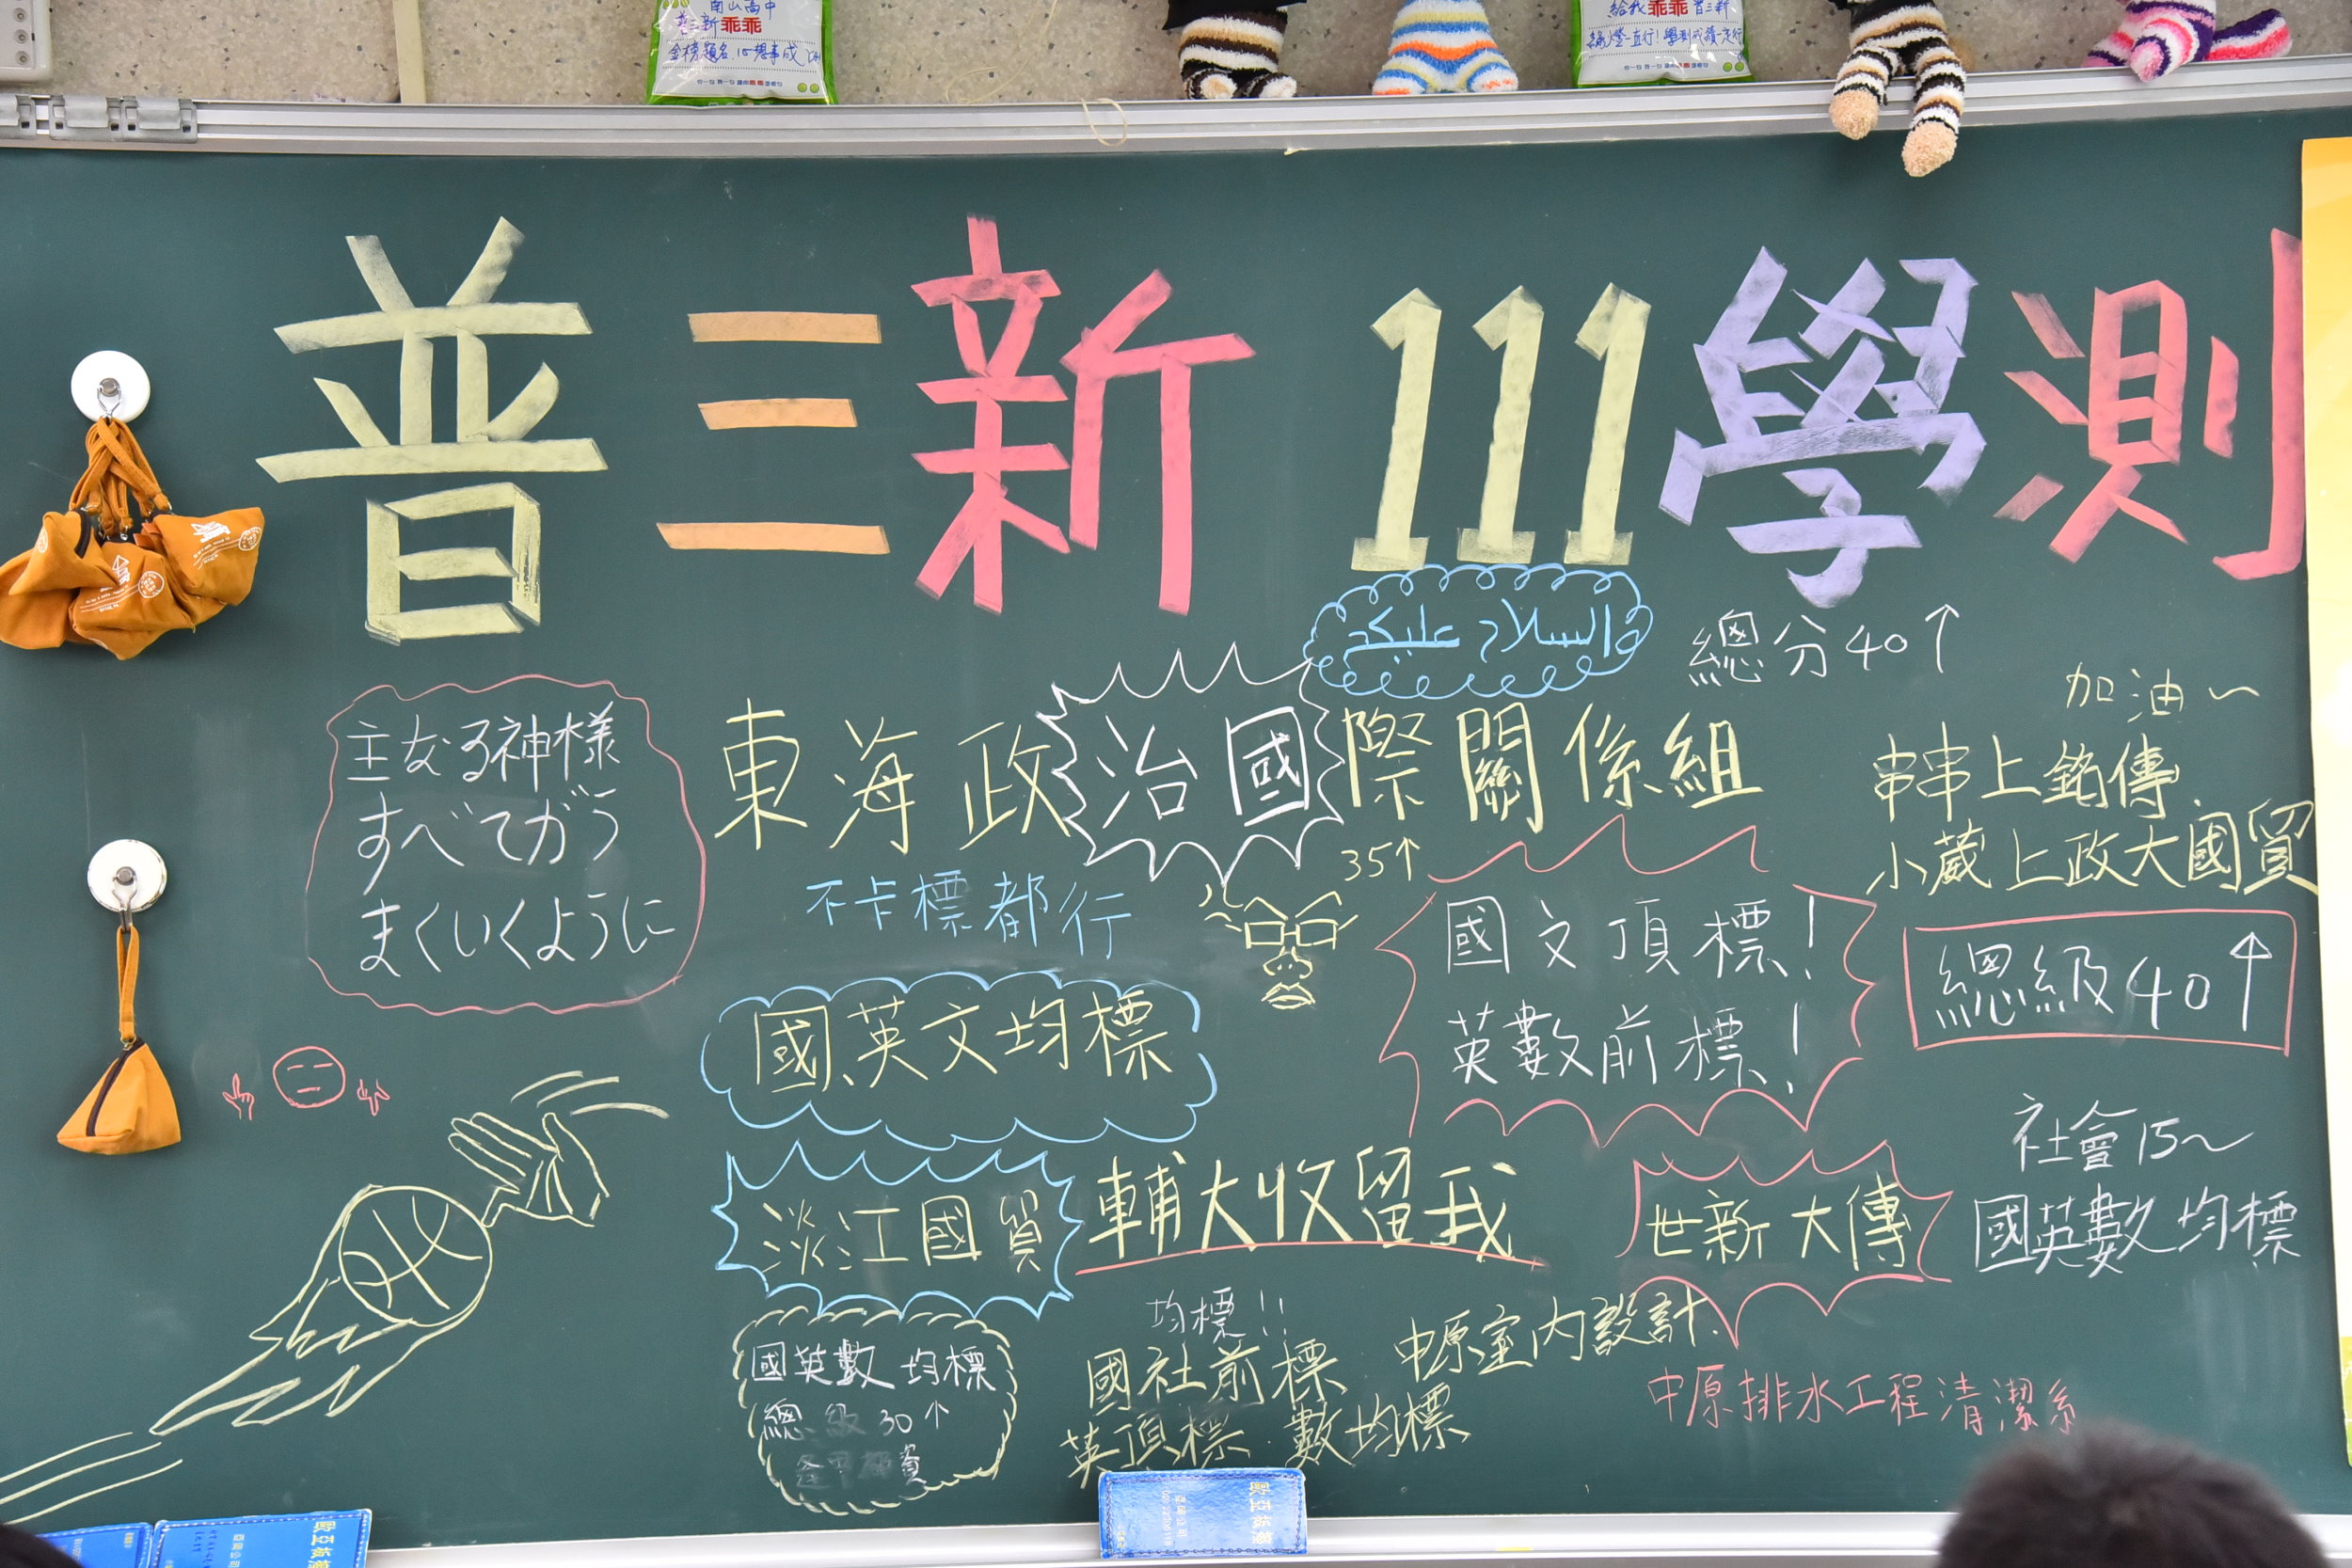 南山高中
普三新乖乖
金榜題名心想事成
給我乖乖 普三新
綠燈一直行!學測成績一定行
普三新 111 學測
السلام عليكم
總分40↑
加油~
主なる神様
すべてがう
まくいくように
東海政治國際關係組
串串上銘傳
小葳上政大國貿
不卡標都行
35↑
國文頂標!
英數前標!
總級40↑
國、英文均標
社會15~
國英數均標
淡江國貿
輔大收留我
世新大傳
均標!!
國社前標
英頂標.數均標
中原室內設計
國英數 均標
總級30↑
中原排水工程清潔系
歐亞板擦
歐亞板擦